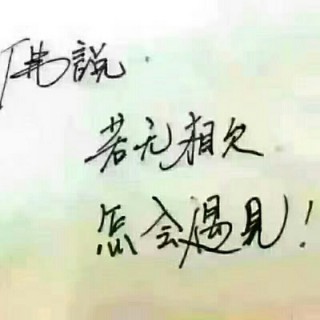 佛説
若无相欠
怎会遇見!